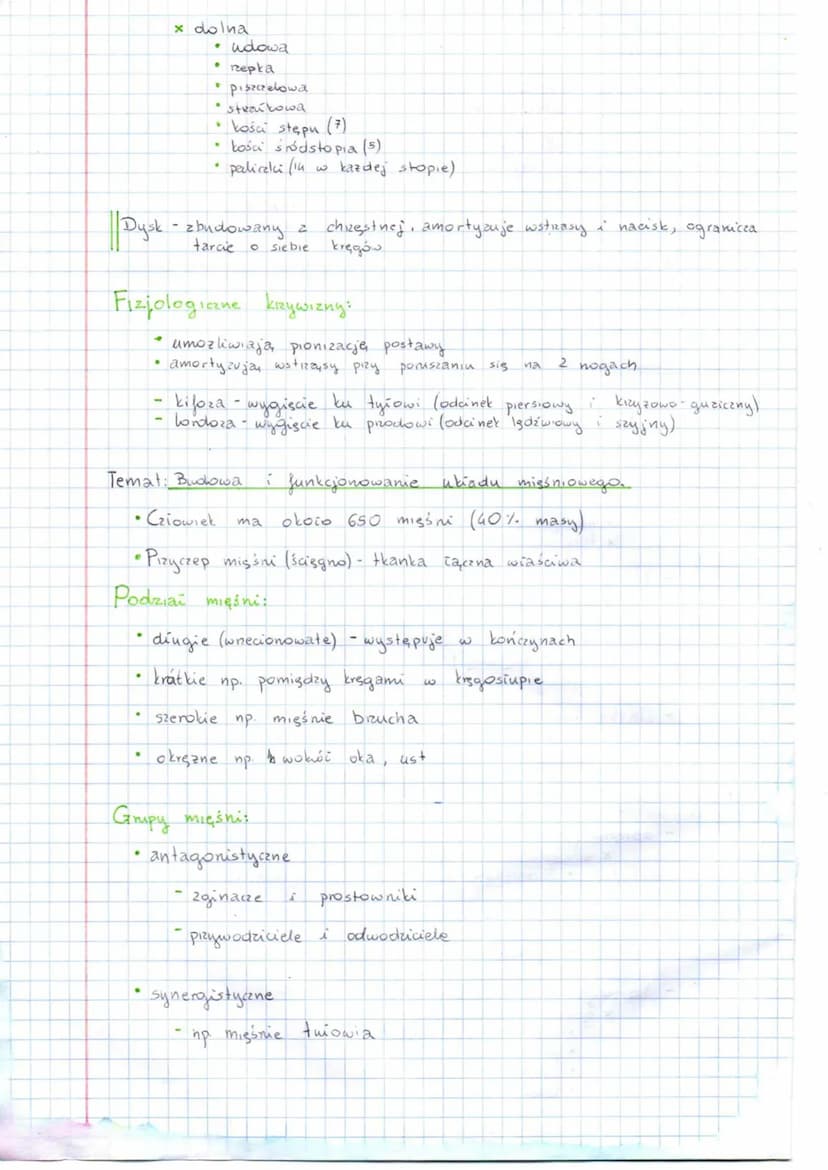 × dolna
• udowa
• rzepka
• piszczelowa
• strzałkowa
• kości stępu (7)
• kości śródstopia (5)
• paliczki (14 w każdej stopie)
Dysk - zbudowany z chrzęstnej, amortyzuje wstrząsy i nacisk, ogranicza
tarcie o siebie kręgów
Fizjologiczne krzywizny:
• umożliwiają pionizację postawy
• amortyzują wstrząsy przy poruszaniu się na 2 nogach
- kifoza - wygięcie ku tyłowi (odcinek piersiowy i krzyżowo-guziczny)
- lordoza - wygięcie ku przodowi (odcinek lędźwiowy i szyjny)
Temat: Budowa i funkcjonowanie układu mięśniowego.
• Człowiek ma około 650 mięśni (40% masy)
• Przyczep mięśni (ścięgno) - tkanka łączna właściwa
Podział mięśni:
• długie (wrzecionowate) - występuje w kończynach
• krótkie np. pomiędzy kręgami w kręgosłupie
• szerokie np. mięśnie brzucha
• okrężne np. wokół oka, ust
Grupy mięśni:
• antagonistyczne
- zginacze i prostowniki
- przywodziciele i odwodziciele
• synergistyczne
- np mięśnie tułowia